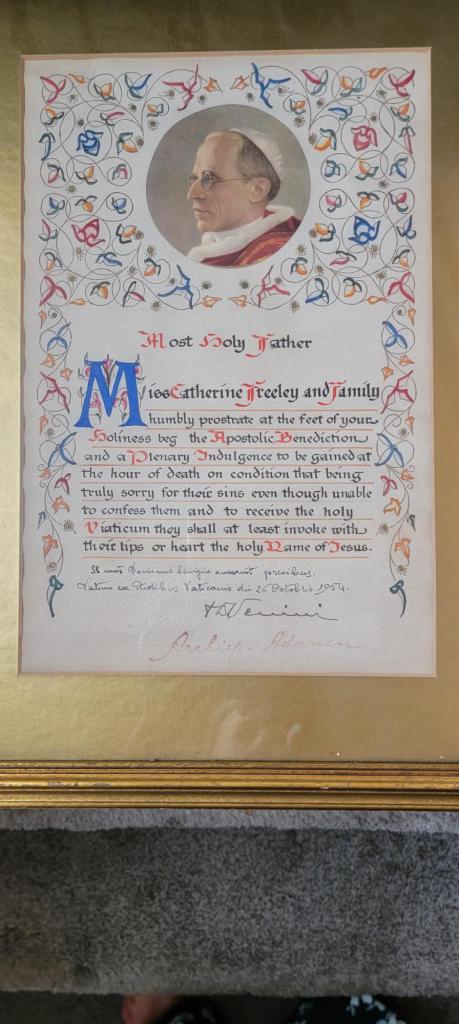 Most Holy Father
Miss Catherine Freeley and Family
humbly prostrate at the feet of your
Holiness beg the Apostolic Benediction
and a Plenary Indulgence to be gained at
the hour of death on condition that being
truly sorry for their sins even though unable
to confess them and to receive the holy
Viaticum they shall at least invoke with
their lips or heart the holy Name of Jesus.
Dominus benigne annuit precibus.
Datum ex Aedibus Vaticanis die 26 Octobris 1954.
Venini
Archiep.